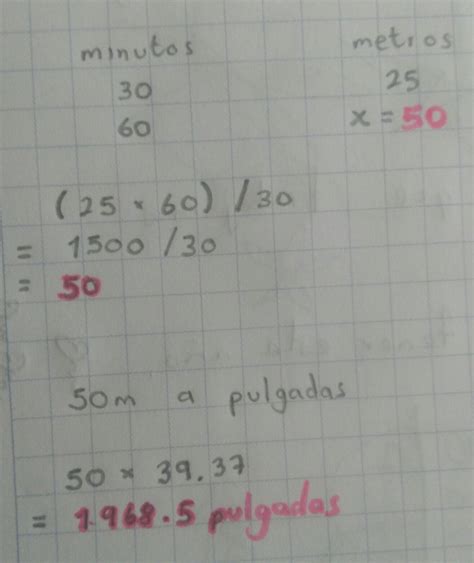 minutos metros
30 25
60 x = 50
(25 × 60) / 30
= 1500 / 30
= 50
50m a pulgadas
50 × 39.37
= 1.968.5 pulgadas